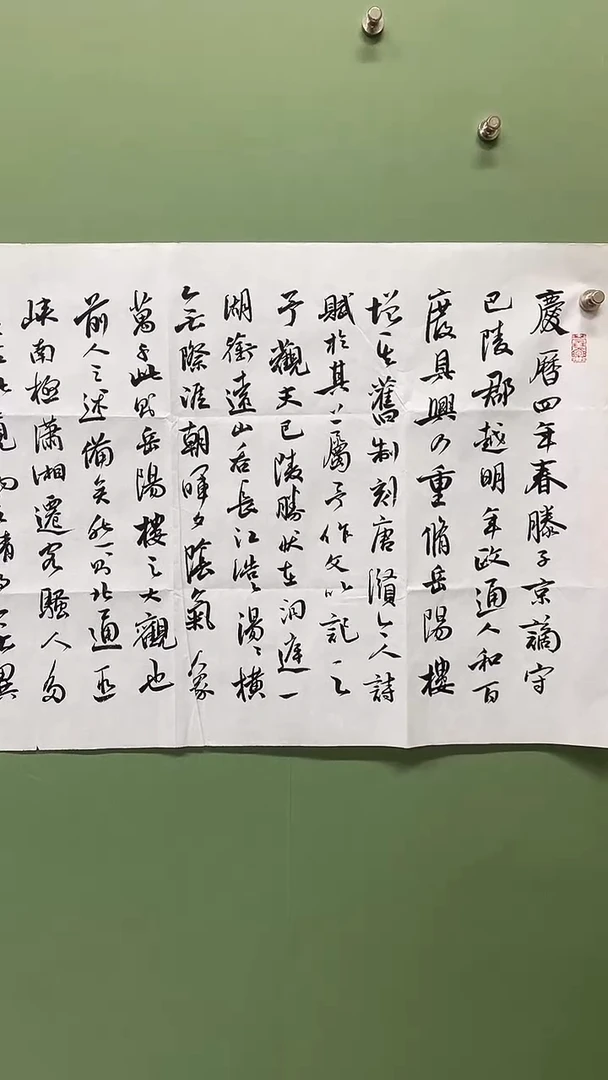 慶曆四年春滕子京謫守
巴陵郡越明年政通人和百
廢具興乃重脩岳陽樓
增其舊制刻唐賢今人詩
賦於其上屬予作文以記之
予觀夫巴陵勝狀在洞庭一
湖銜遠山吞長江浩〻湯〻橫
無際涯朝暉夕陰氣象
萬千此則岳陽樓之大觀也
前人之述備矣然則北通巫
峽南極瀟湘遷客騷人多